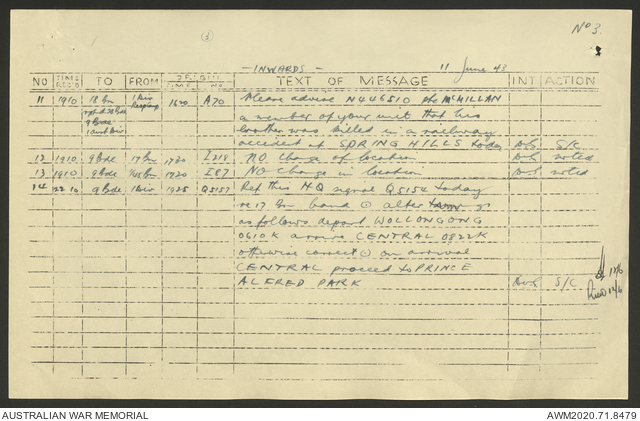 No 3.
(3)
- INWARDS - 11 June 43
NO TIME REC'D TO FROM ORIGIN TEXT OF MESSAGE INT ACTION
11 1910 18 Bn 1 Div 1620 A70 Please advise N446510 Pte McMILLAN
a member of your unit that his
9 Bde brother was killed in a railway
1 Aust Div accident at SPRING HILLS today S/C
12 1910 9 Bde 17 Bn 1730 I219 NO change of location noted
13 1910 9 Bde 1920 I87 NO change in location noted
14 2210 9 Bde 1 Div 1925 Q5157 Ref this HQ signal Q5154 today
re 17 Bn band alter
as follows depart WOLLONGONG
0610K arrive CENTRAL 0822K
otherwise correct on arrival
CENTRAL proceed to PRINCE
ALFRED PARK S/C
12/6
12/6
AUSTRALIAN WAR MEMORIAL AWM2020.71.8479